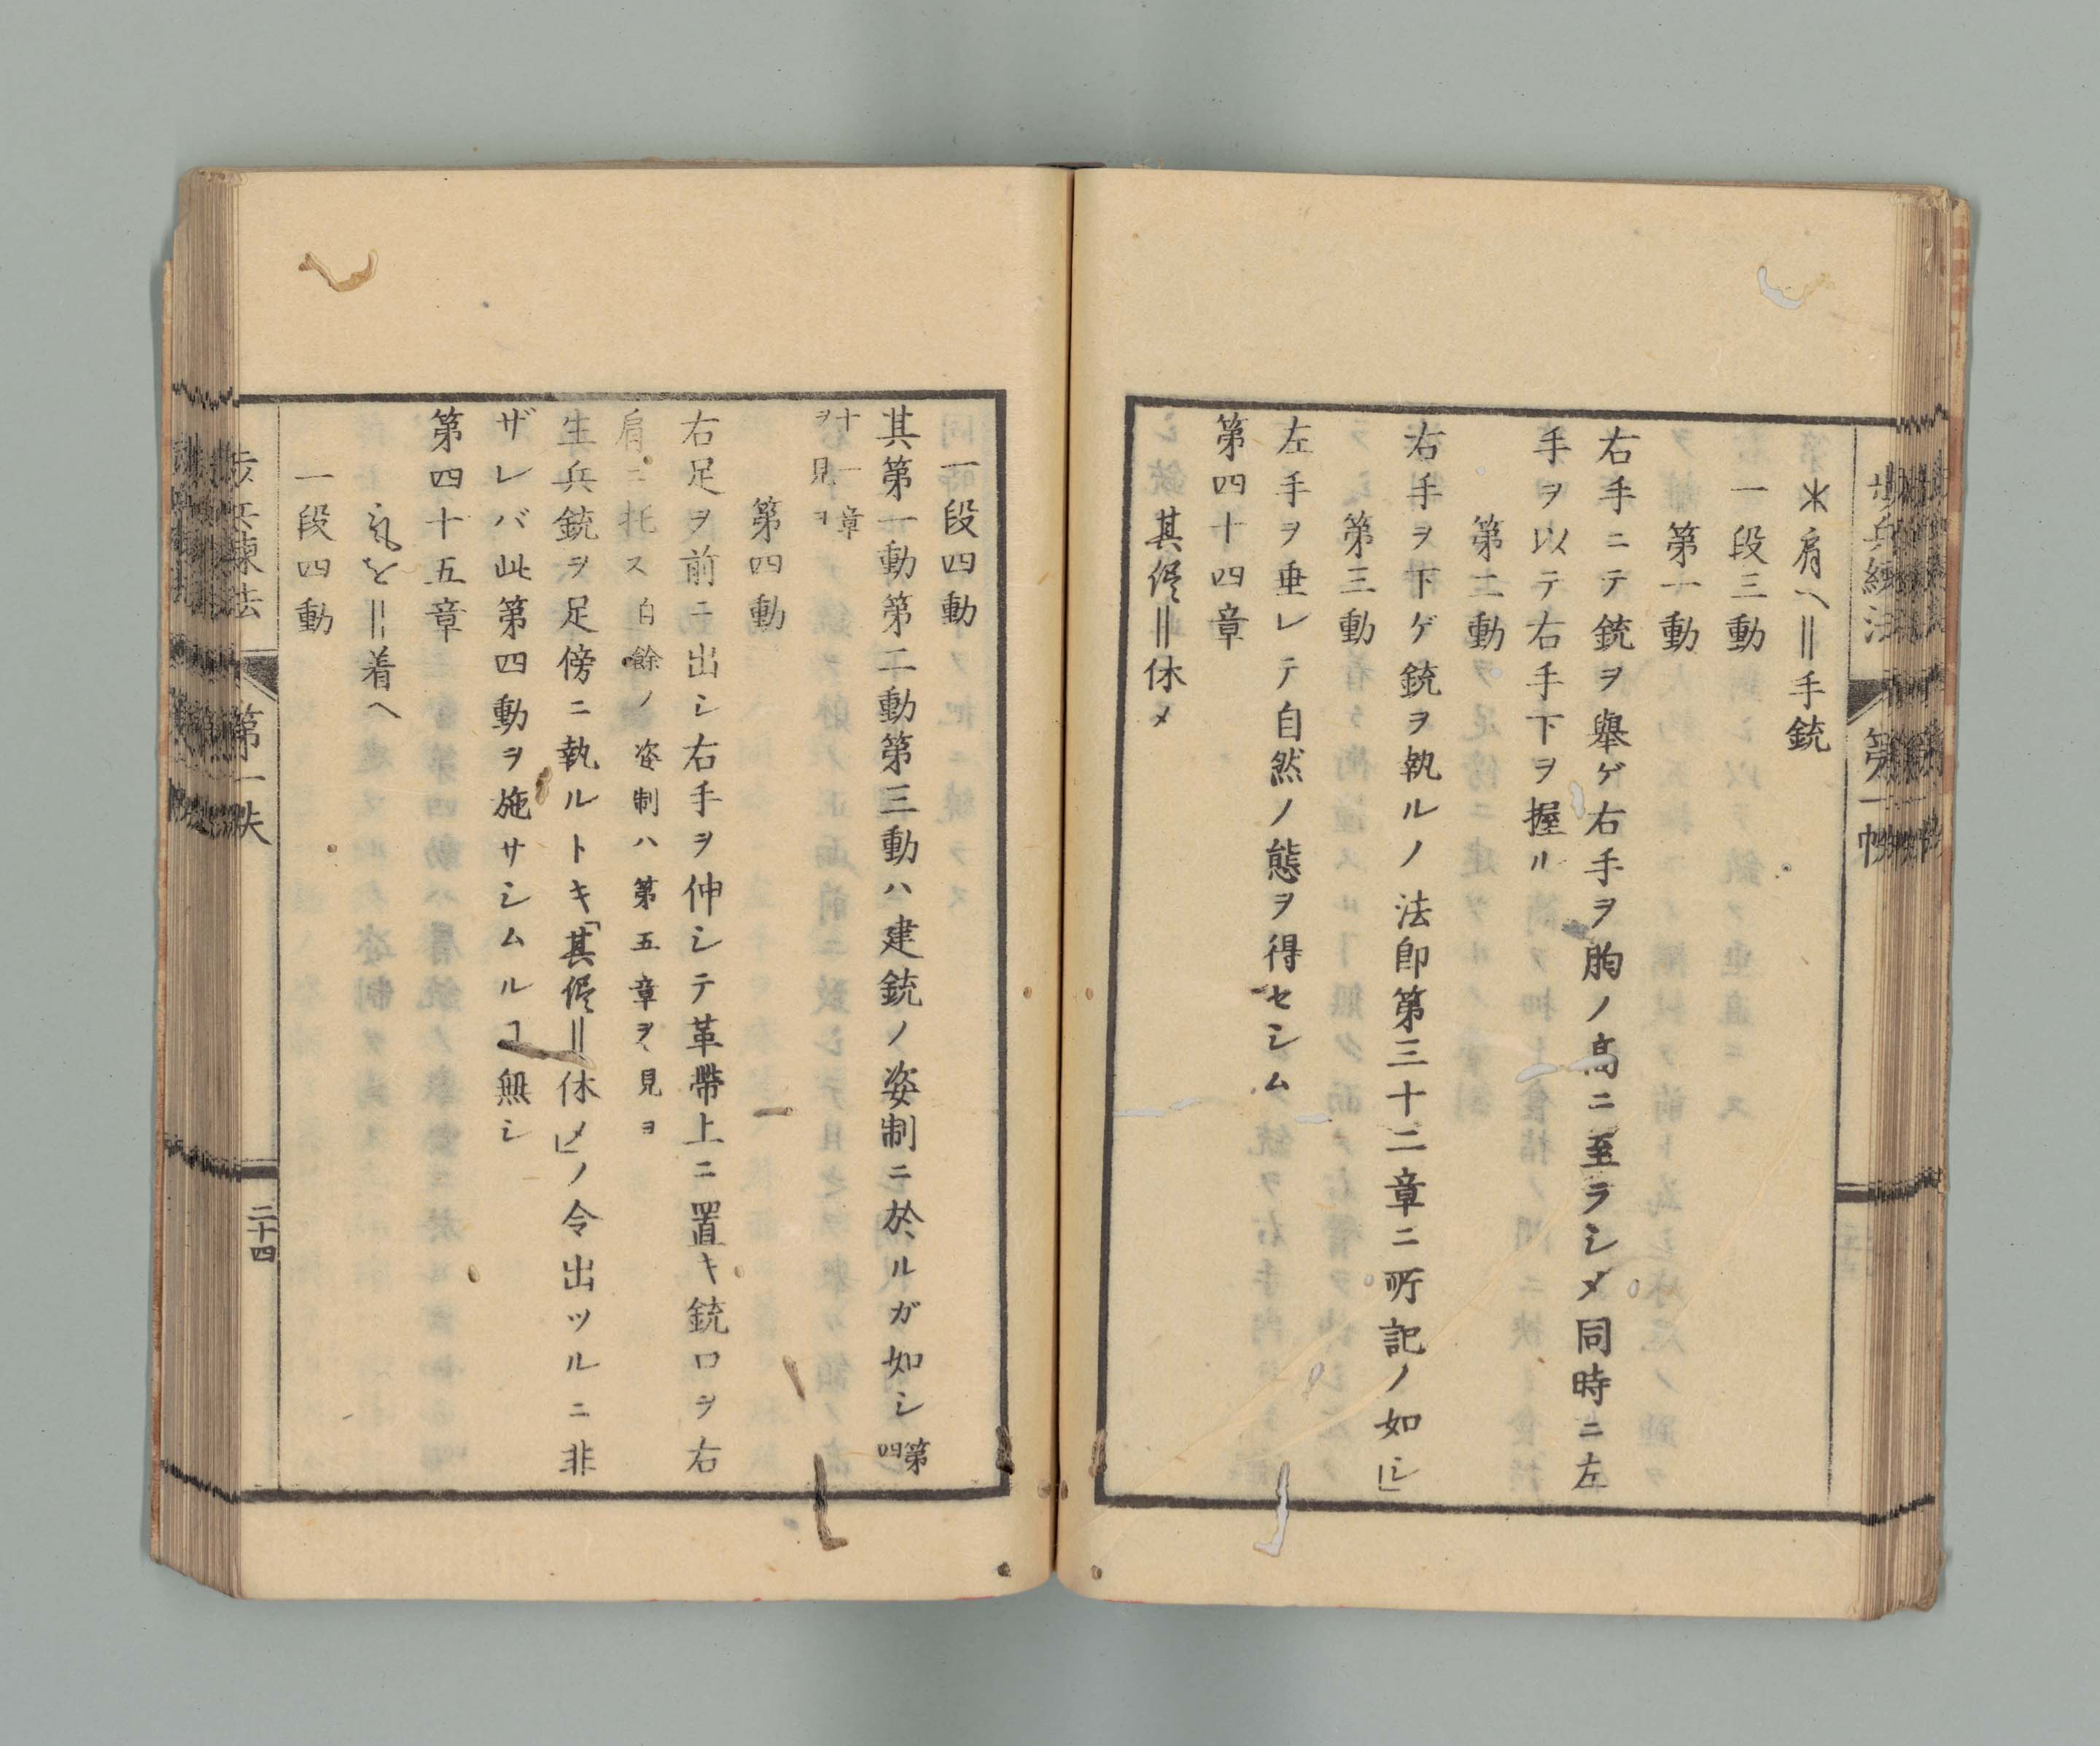 歩兵練法 第一帙
肩ヘ‖手銃
一段三動
第一動
右手ニテ銃ヲ擧ゲ右手ヲ胸ノ高ニ至ラシメ同時ニ左
手ヲ以テ右手下ヲ握ル
第二動
右手ヲ下ゲ銃ヲ執ルノ法即第三十二章ニ所記ノ如シ」
第三動
左手ヲ垂レテ自然ノ態ヲ得セシム
第四十四章
其儘‖休メ
一段四動
其第一動第二動第三動ハ建銃ノ姿制ニ於ルガ如シ第四
十一章
ヲ見ヨ
第四動
右足ヲ前ニ出シ右手ヲ伸シテ革帶上ニ置キ銃口ヲ右
肩ニ托ス自餘ノ姿制ハ第五章ヲ見ヨ
生兵銃ヲ足傍ニ執ルトキ「其儘‖休メ」ノ令出ツルニ非
ザレバ此第四動ヲ施サシムルヿ無シ
第四十五章
氣を‖着ヘ
一段四動
歩兵練法 第一帙 二十四